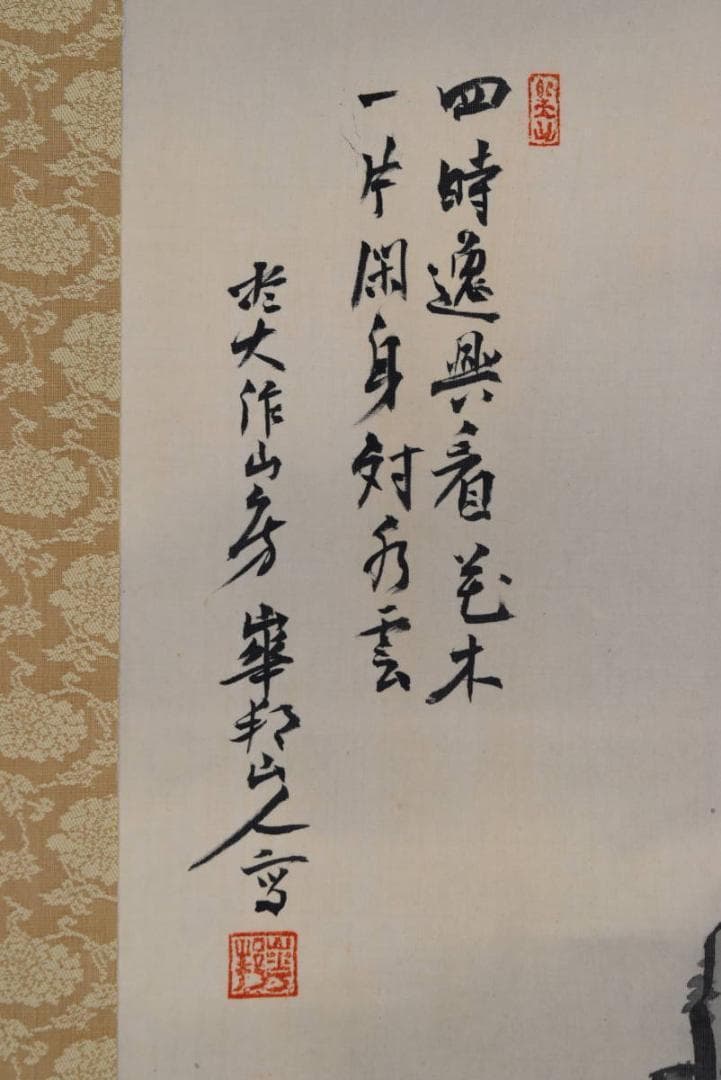 四時逸興看花木
一片閑身対水雲
於大作山房 崋邦山人写